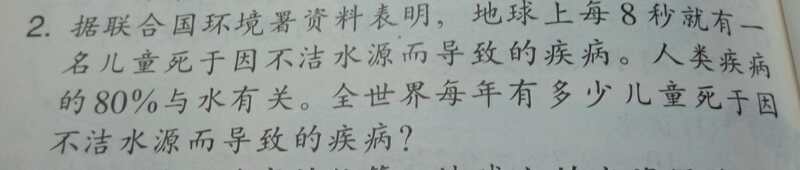 2. 据联合国环境署资料表明，地球上每8秒就有一
名儿童死于因不洁水源而导致的疾病。人类疾病
的80%与水有关。全世界每年有多少儿童死于因
不洁水源而导致的疾病？